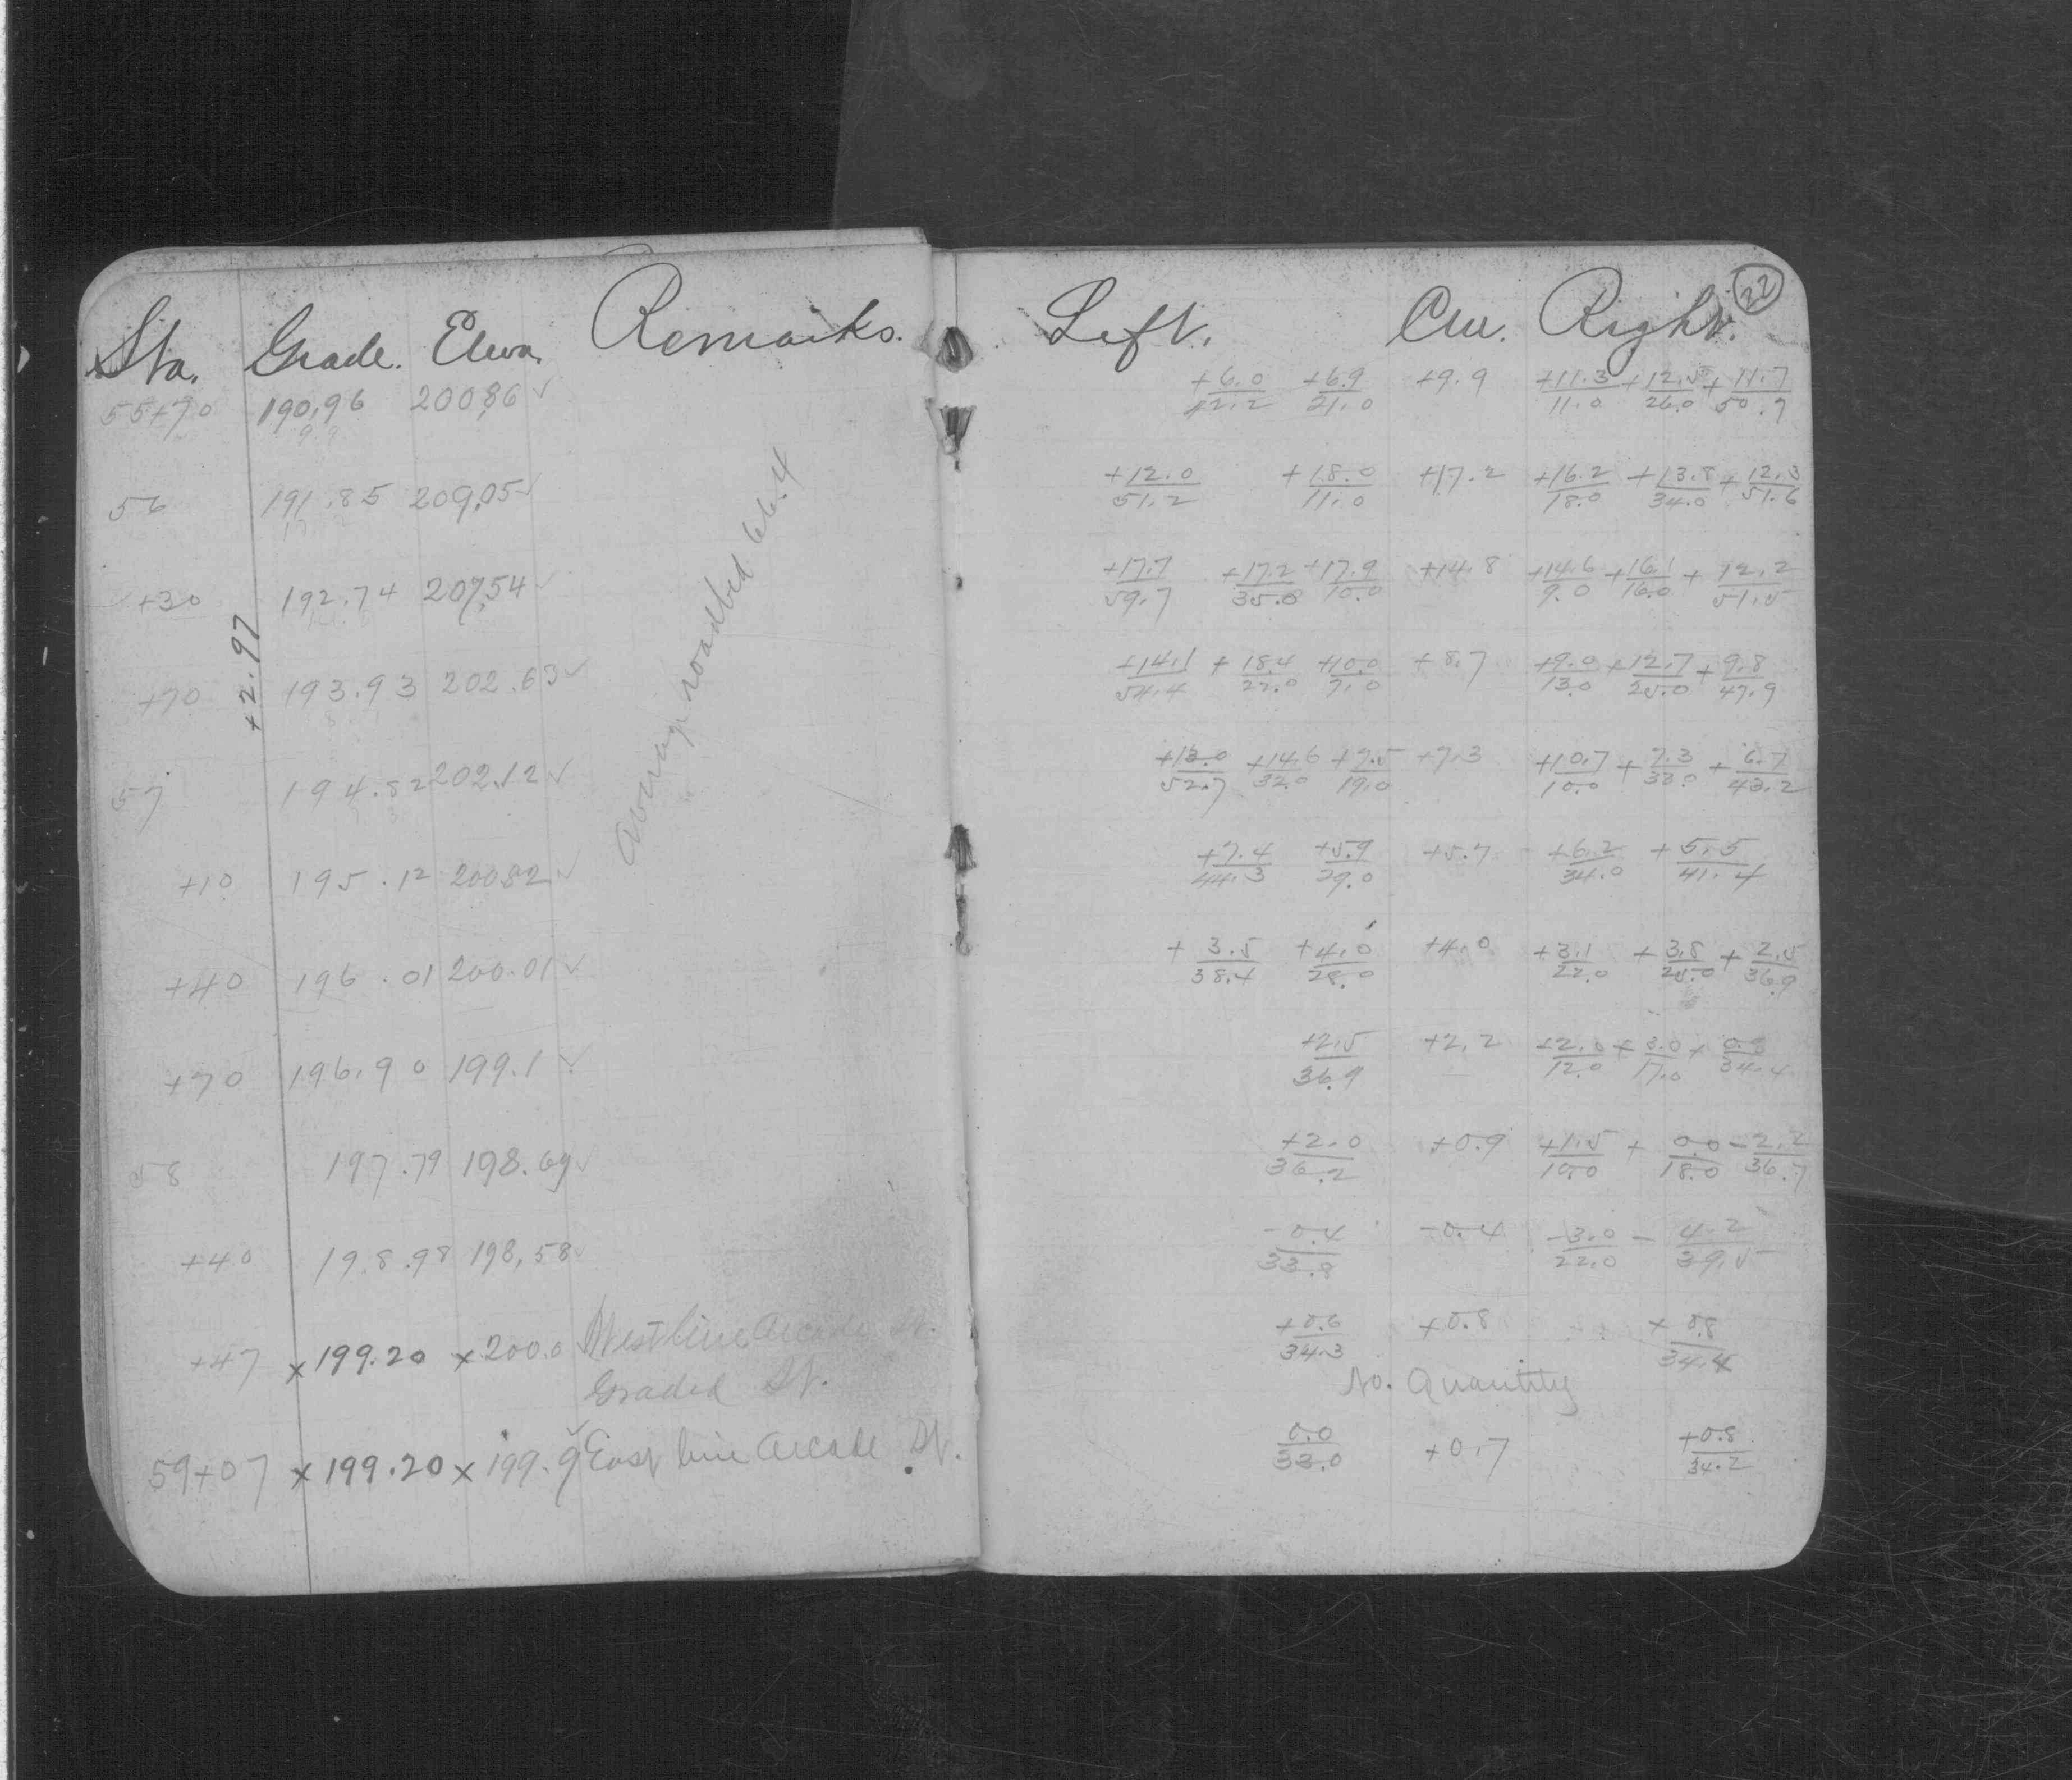 Sta. Grade. Eleva. Remarks. Left. Cen. Right. 22
55+70 190.96 200.86 ✓ +6.0/42.2 +6.9/21.0 +9.9 +11.3/11.0 +12.5/26.0 +11.7/50.9
9.9
56 191.85 209.05 ✓ +12.0/51.2 +18.0/11.0 +17.2 +16.2/18.0 +13.8/34.0 +12.3/51.6
+30 192.74 207.54 ✓ +17.7/59.7 +17.2/35.0 +17.9/10.0 +14.8 +14.6/9.0 +16.1/16.0 +12.2/51.5
+2.97
Average roadbed 66.4
+70 193.93 202.63 ✓ +14.1/54.4 +18.4/22.0 +10.0/7.0 +8.7 +9.0/13.0 +12.7/25.0 +9.8/47.9
57 194.82 202.12 ✓ +13.0/52.7 +14.6/32.0 +7.5/19.0 +7.3 +10.7/10.0 +7.3/33.0 +6.7/43.2
+10 195.12 200.82 ✓ +7.4/44.3 +5.9/29.0 +5.7 +6.2/34.0 +5.5/41.4
+40 196.01 200.01 ✓ +3.5/38.4 +4.0/28.0 +4.0 +3.1/22.0 +3.8/25.0 +2.5/36.9
+70 196.90 199.1 ✓ +2.5/36.9 +2.2 +2.0/12.0 +3.0/17.0 +0.8/34.4
58 197.79 198.69 ✓ +2.0/36.2 +0.9 +1.5/10.0 + 0.0/18.0 -2.2/36.7
+40 198.98 198.58 ✓ -0.4/33.8 -0.4 -3.0/22.0 - 4.2/39.5
+47 x 199.20 x 200.0 West line Arcade St. +0.6/34.3 +0.8 +0.8/34.4
Graded St. No. Quantity
59+07 x 199.20 x 199.9 ✓ East line Arcade St. 0.0/33.0 +0.7 +0.8/34.2